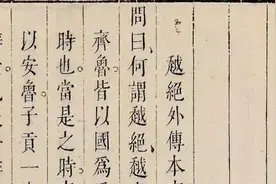 越絕外傳本
問曰何謂越絕越
齊魯皆以國爲
時也當是之時
以安魯子貢一